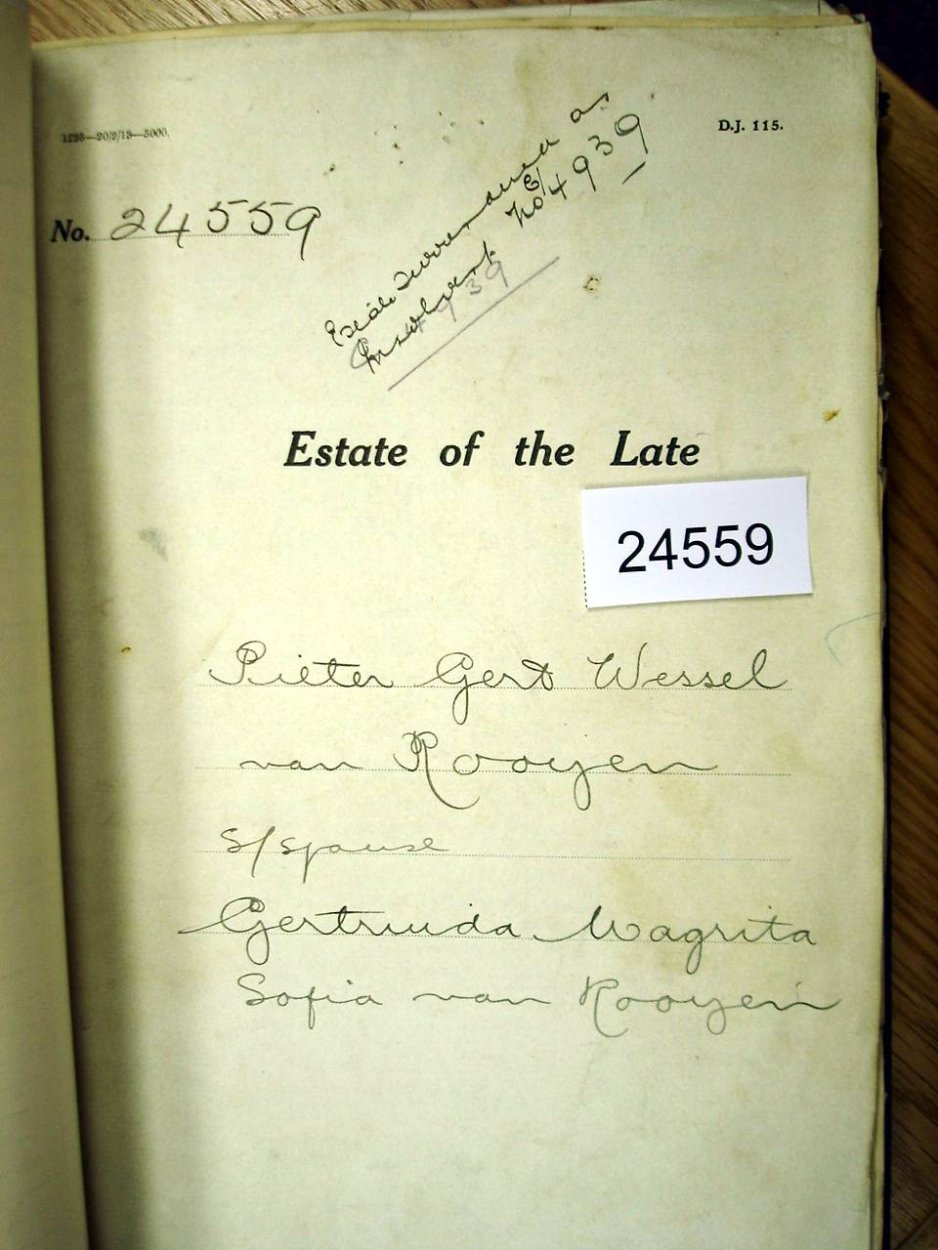 1293—20/2/13—5000.
D.J. 115.
No. 24559
Estate Surrendered as
Insolvent No 4939
4939
Estate of the Late
24559
Pieter Gert Wessel
van Rooyen
s/spouse
Gertruida Magrita
Sofia van Rooyen